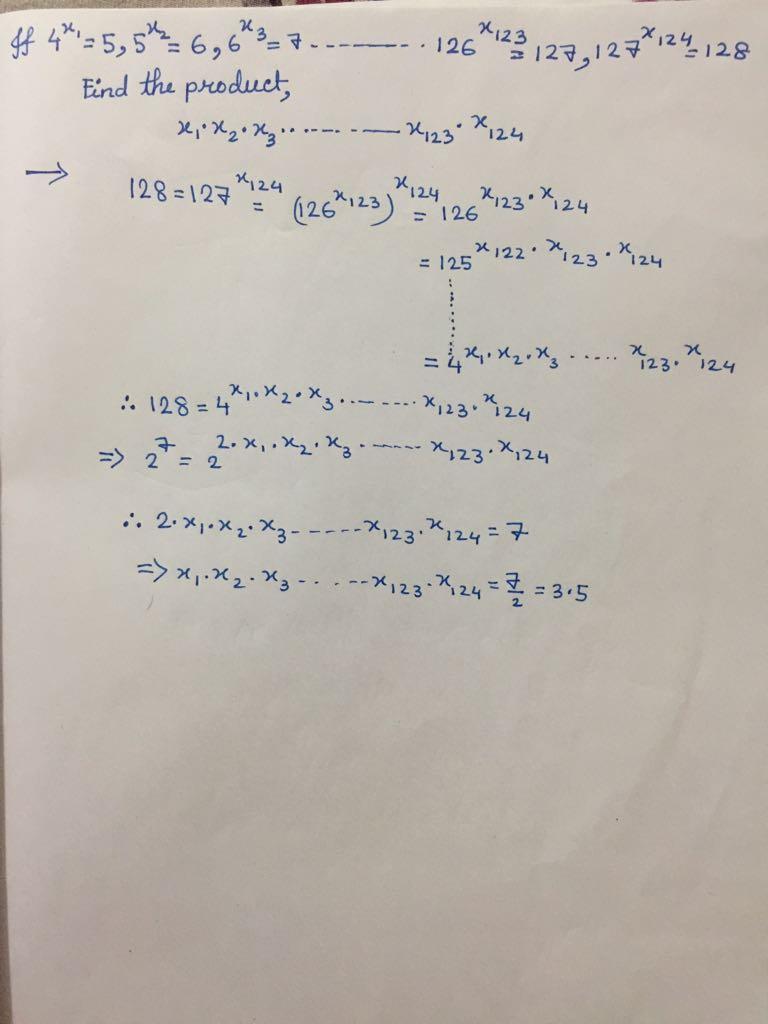 If 4^x₁ = 5, 5^x₂ = 6, 6^x₃ = 7 --------- . 126^x₁₂₃ = 127, 127^x₁₂₄ = 128
Find the product,
x₁·x₂·x₃ ······ —— x₁₂₃·x₁₂₄
→ 128 = 127^x₁₂₄ = (126^x₁₂₃)^x₁₂₄ = 126^x₁₂₃·x₁₂₄
= 125^x₁₂₂·x₁₂₃·x₁₂₄
= 4^x₁·x₂·x₃ ····· x₁₂₃·x₁₂₄
∴ 128 = 4^x₁·x₂·x₃ ·------- x₁₂₃·x₁₂₄
=> 2^7 = 2^2·x₁·x₂·x₃ ·------ x₁₂₃·x₁₂₄
∴ 2·x₁·x₂·x₃ ------ x₁₂₃·x₁₂₄ = 7
=> x₁·x₂·x₃ - - . . --- x₁₂₃·x₁₂₄ = 7/2 = 3·5